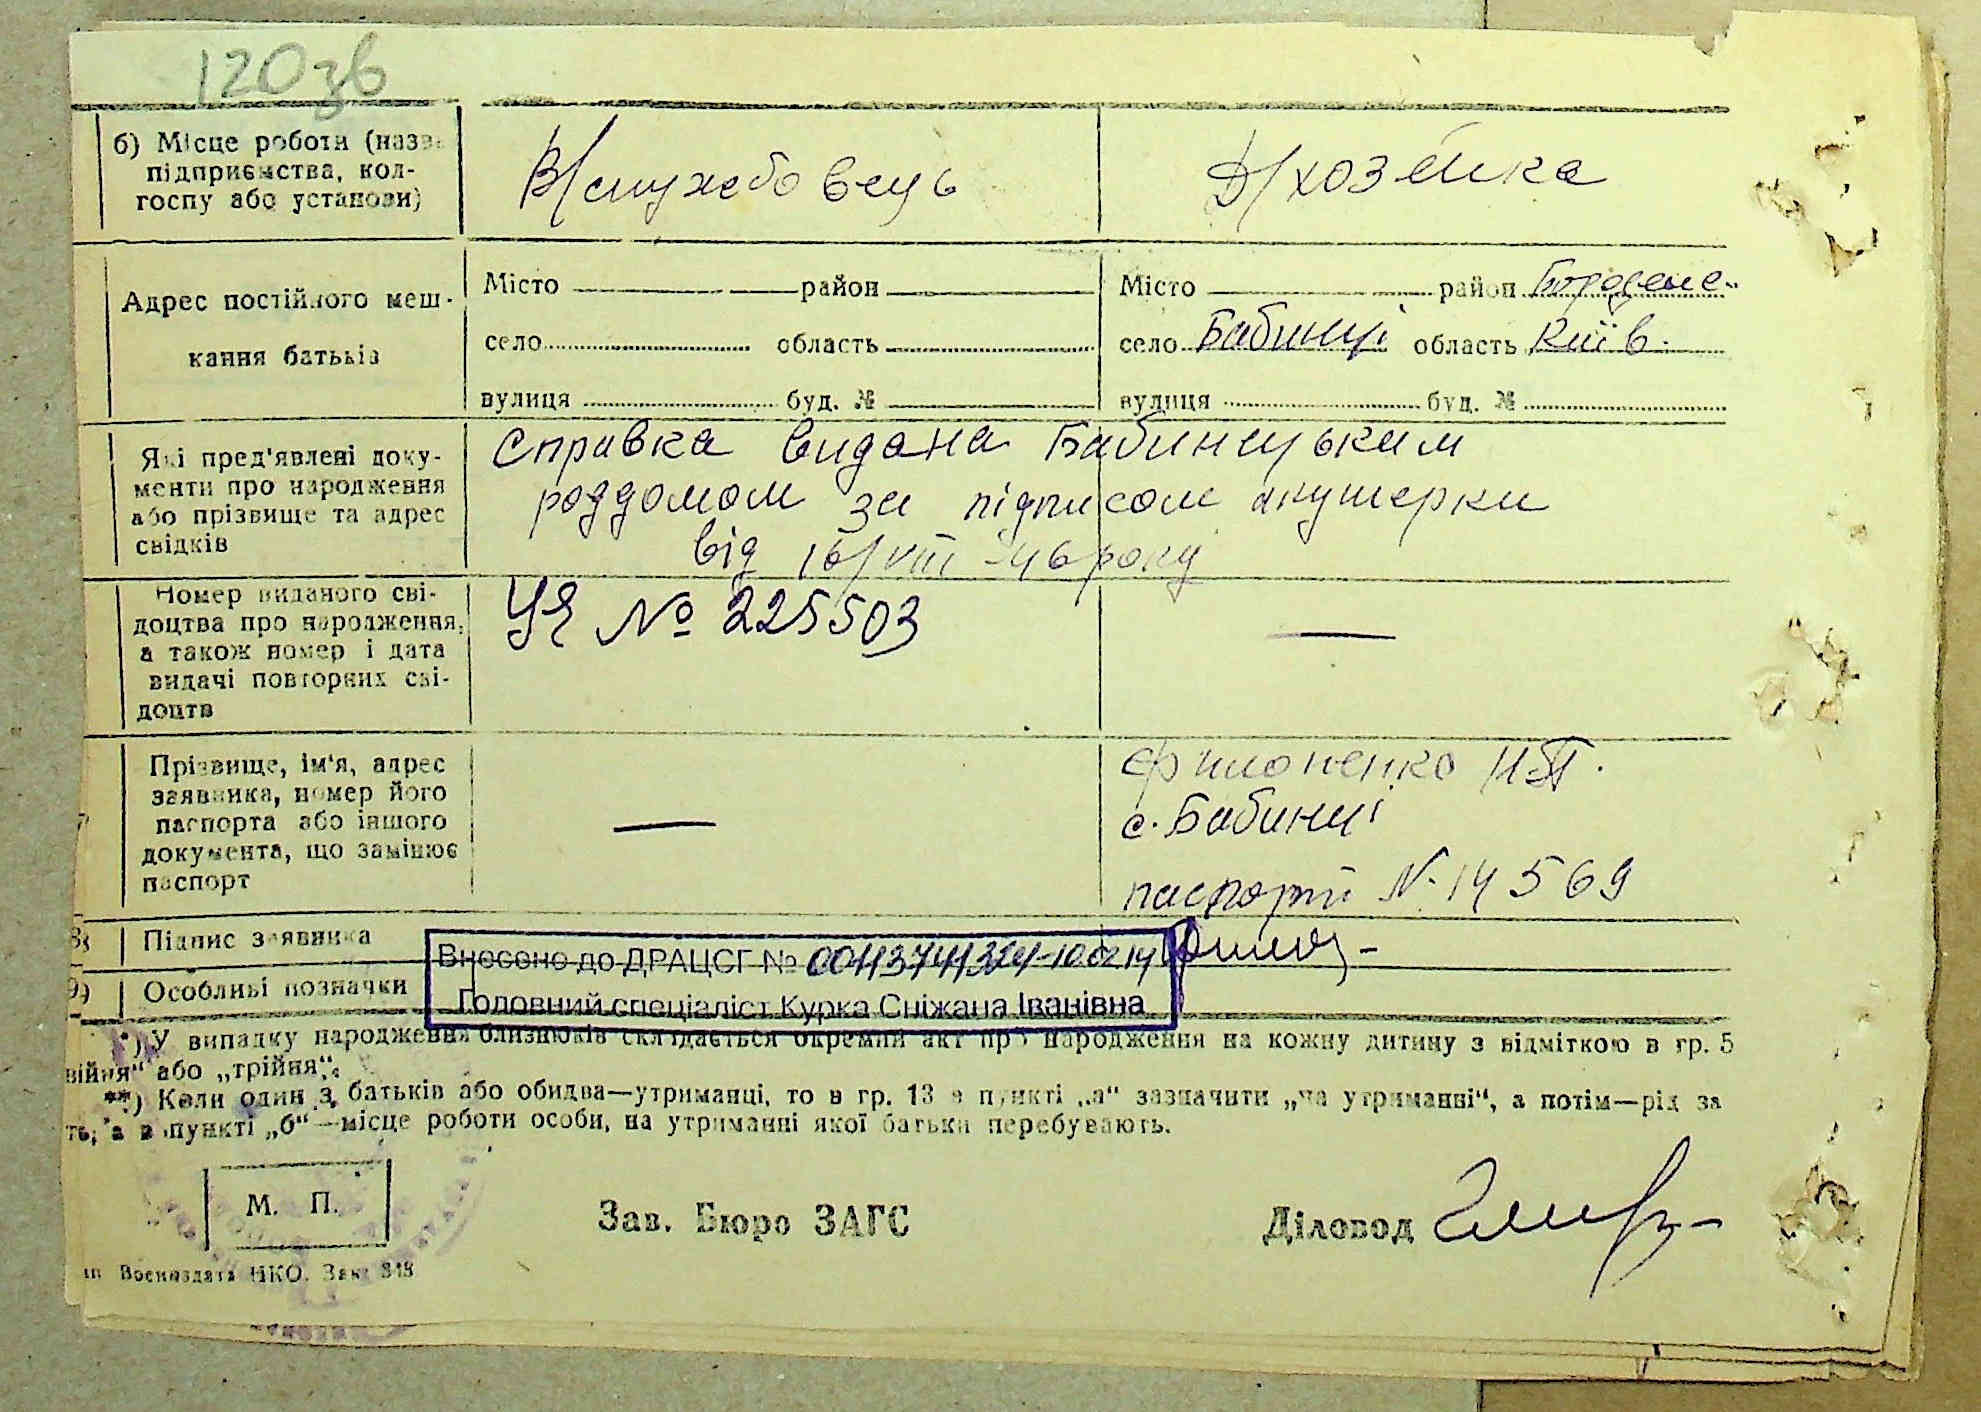 120зв
б) Місце роботи (назва
підприємства, кол-
госпу або установи)
В/службовець
Д/хозейка
Адрес постійного меш-
кання батьків
Місто район
село область
вулиця буд. №
Місто район Бородянс.
село Бабинці область Київ.
вулиця буд. №
Які пред'явлені доку-
менти про народження
або прізвище та адрес
свідків
Справка видана Бабинцуьким
роддомом за підписом акушерки
від 16/VIII-46 року
Номер виданого сві-
доцтва про народження,
а також номер і дата
видачі повторних сві-
доцтв
УЯ № 225503
Прізвище, ім'я, адрес
заявника, номер його
паспорта або іншого
документа, що замінює
паспорт
Єфименко
с. Бабинці
паспорт N-14569
Підпис заявника
Особливі позначки
Внесено до ДРАЦСГ №
Головний спеціаліст Курка Сніжана Іванівна
*) У випадку народження близнюків складається окремий акт про народження на кожну дитину з відміткою в гр. 5
війня" або „трійня".
**) Коли один з батьків або обидва—утриманці, то в гр. 13 в пункті „а" зазначити „на утриманні", а потім—рід за
ть, а в пункті „б"—місце роботи особи, на утриманні якої батьки перебувають.
М. П.
Зав. Бюро ЗАГС
Діловод
Воениздата НКО. Зак. 348